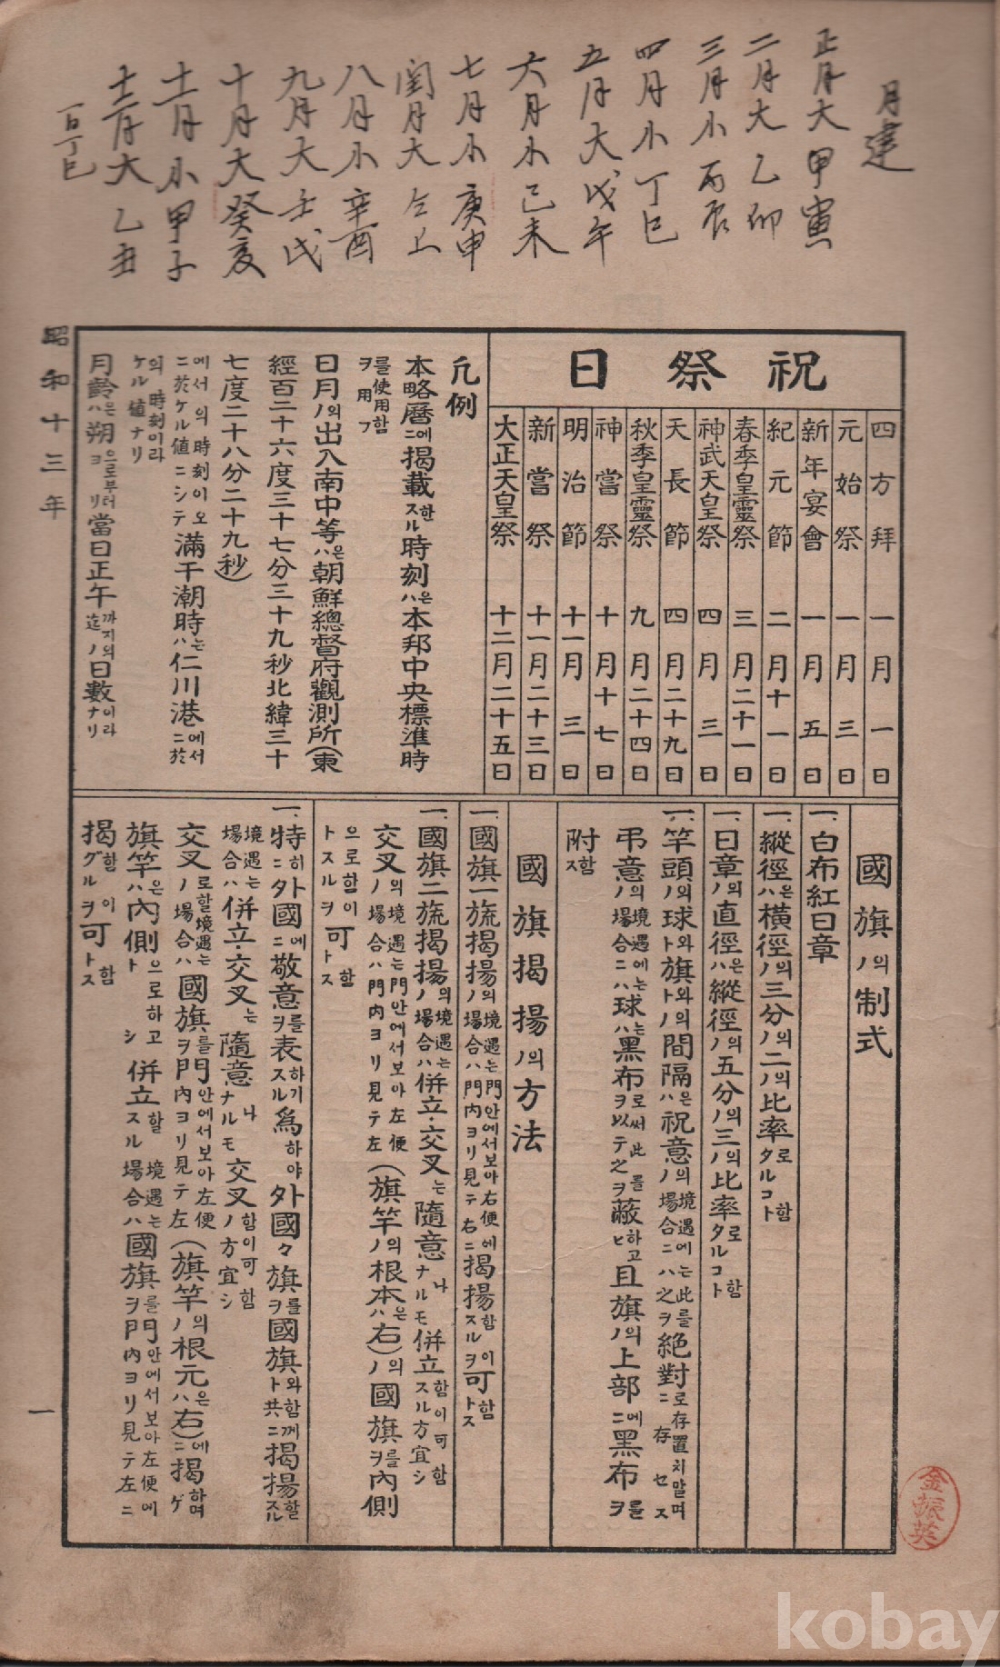 月建
正月大甲寅
二月大乙卯
三月小丙辰
四月小丁巳
五月大戊午
六月小己未
七月小庚申
閏月大
八月小辛酉
九月大壬戌
十月大癸亥
十一月小甲子
十二月大乙丑
昭和十三年
祝祭日
四方拜 一月一日
元始祭 一月三日
新年宴會 一月五日
紀元節 二月十一日
春季皇靈祭 三月二十一日
神武天皇祭 四月三日
天長節 四月二十九日
秋季皇靈祭 九月二十四日
神嘗祭 十月十七日
明治節 十一月三日
新嘗祭 十一月二十三日
大正天皇祭 十二月二十五日
凡例
本略曆ニ에揭載スル한時刻ハ은本邦中央標準時
ヲ用フ를使用함
日月ノ의出入南中等ハ은朝鮮總督府觀測所(東
經百二十六度三十七分三十九秒北緯三十
七度二十八分二十九秒)
ニ於ケル値ニシテ에서의時刻이오滿干潮時ハ는仁川港ニ於에서
ケル値ナリ의時刻이라
月齡ハ은朔ヨリ으로부터當日正午迄ノ까지의日數ナリ이라
國旗ノ의制式
一、白布紅日章
一、縱徑ハ은橫徑ノ의三分ノ의二ノ의比率タルコト로함
一、日章ノ의直徑ハ은縱徑ノ의五分ノ의三ノ의比率タルコト로함
一、竿頭ノ의球ト와旗トノ와의間隔ハ은祝意ノ場合ニハ之ヲ의境遇에는此를絶對ニ存セス로存置치말며
弔意ノ場合ニハ의境遇에는球ハ는黑布ヲ以テ之ヲ로써此를蔽ヒ하고且旗ノ의上部ニ에黑布ヲ를
附ス함
國旗揭揚ノ의方法
一、國旗一旒揭揚ノ場合ハ門內ヨリ見テ右ニ의境遇는門안에서보아右便에揭揚スルヲ함이可トス함
一、國旗二旒揭揚ノ場合ハ의境遇는倂立·交叉는隨意ナルモ나倂立スル方宜シ함이可함
交叉ノ場合ハ門內ヨリ見テ左의境遇는門안에서보아左便(旗竿ノ의根本ハ은右)ノ의國旗ヲ를內側
トスルヲ으로함이可トス함
一、特ニ히外國ニ에敬意ヲ를表スル하기爲하야外國々旗ヲ를國旗ト共ニ와함께揭揚スル할
場合ハ境遇는倂立·交叉는隨意ナルモ나交叉ノ方宜シ함이可함
交叉ノ場合ハ로할境遇는國旗ヲ를門內ヨリ見テ左안에서보아左便(旗竿ノ의根元ハ은右)ニ에揭ゲ하며
旗竿ハ은內側トシ으로하고倂立スル場合ハ할境遇는國旗ヲ를門內ヨリ見テ左ニ안에서보아左便에
揭グルヲ함이可トス함
一
金振英
kobay